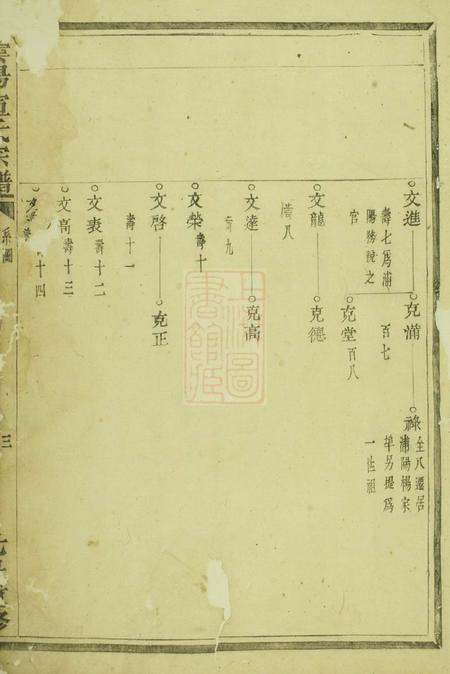 文進
壽七爲浦
陽務提之
官
克滿
百七
克堂
百八
祿
全八遷居
浦陽楊家
埠另提爲
一世祖
文龍
壽八
克德
文達
壽九
克高
文榮
壽十
文啓
壽十一
克正
文表
壽十二
文高
壽十三
十四
宗譜
系圖
三
上海圖書館藏